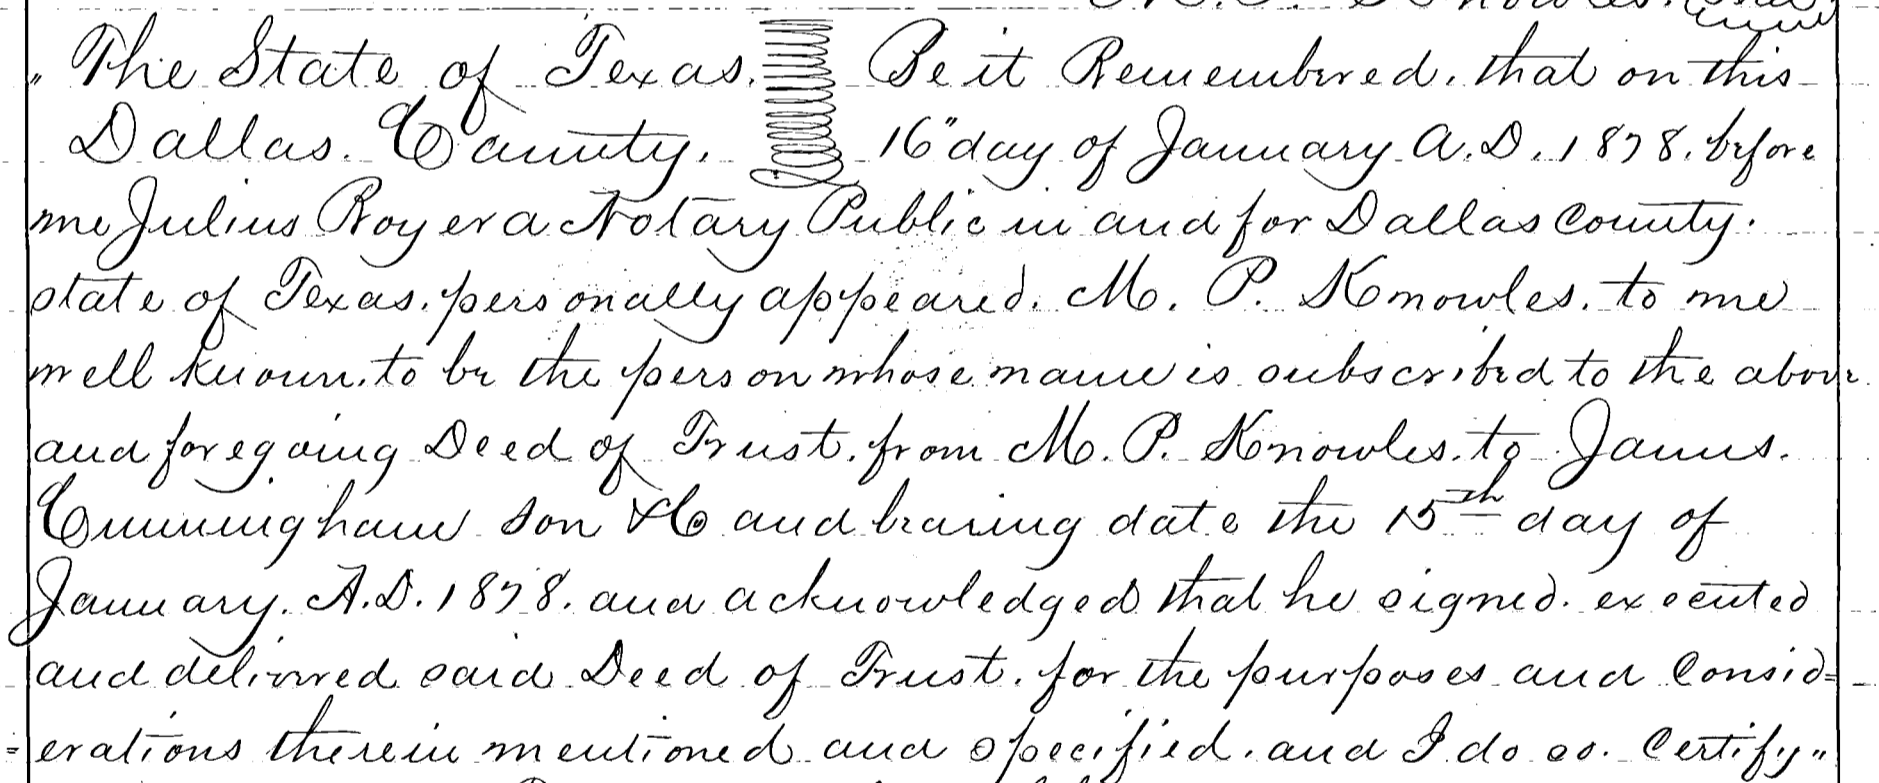 " The State of Texas. Be it Remembered. that on this
Dallas. County. 16" day of January A.D. 1878. before
me Julius Royer a Notary Public in and for Dallas County.
state of Texas. personally appeared. M. P. Knowles. to me
well known. to be the person whose name is subscribed to the above
and foregoing Deed of Trust. from M. P. Knowles. to James.
Cunningham son & Co and bearing date the 15th day of
January. A.D. 1878. and acknowledged that he signed. executed
and delivered said Deed of Trust. for the purposes and Consid=
=erations therein mentioned and specified. and I do so. Certify"